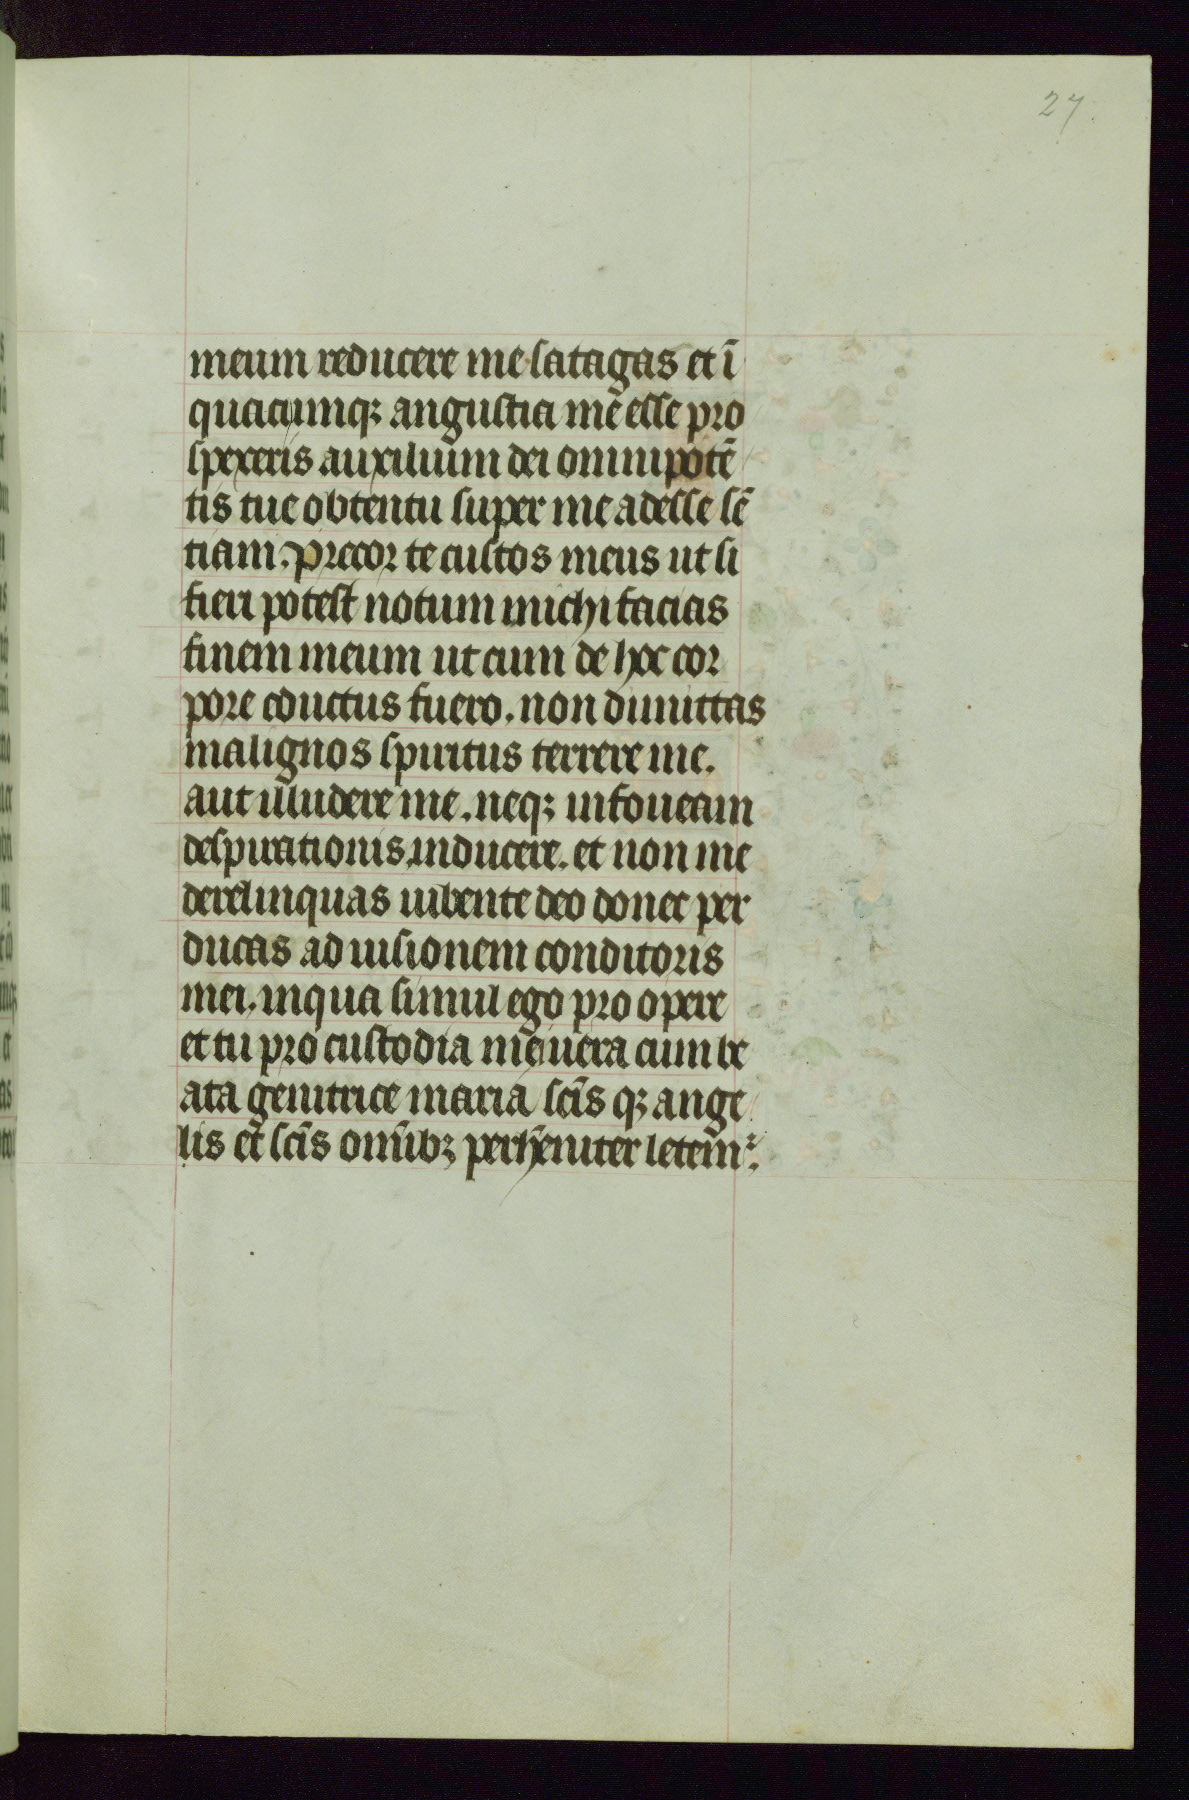 27
meum reducere me satagas et ī
quacumqȝ angustia mē esse pro
spexeris auxilium dei omnipotē
tis tue obtentu super me adesse sē
tiam. Precor te custos meus ut si
fieri potest notum michi facias
finem meum ut cum de hoc cor
pore eductus fuero. non dimittas
malignos spiritus terrere me.
aut illudere me. neqȝ in foueam
desperationis inducere. et non me
derelinquas iubente deo donec per
ducas ad uisionem conditoris
mei. in qua simul ego pro opere
et tu pro custodia mē uera cum be
ata genitrice maria scīs qȝ ange
lis et scīs omībȝ perhēniter letem̄ꝛ.